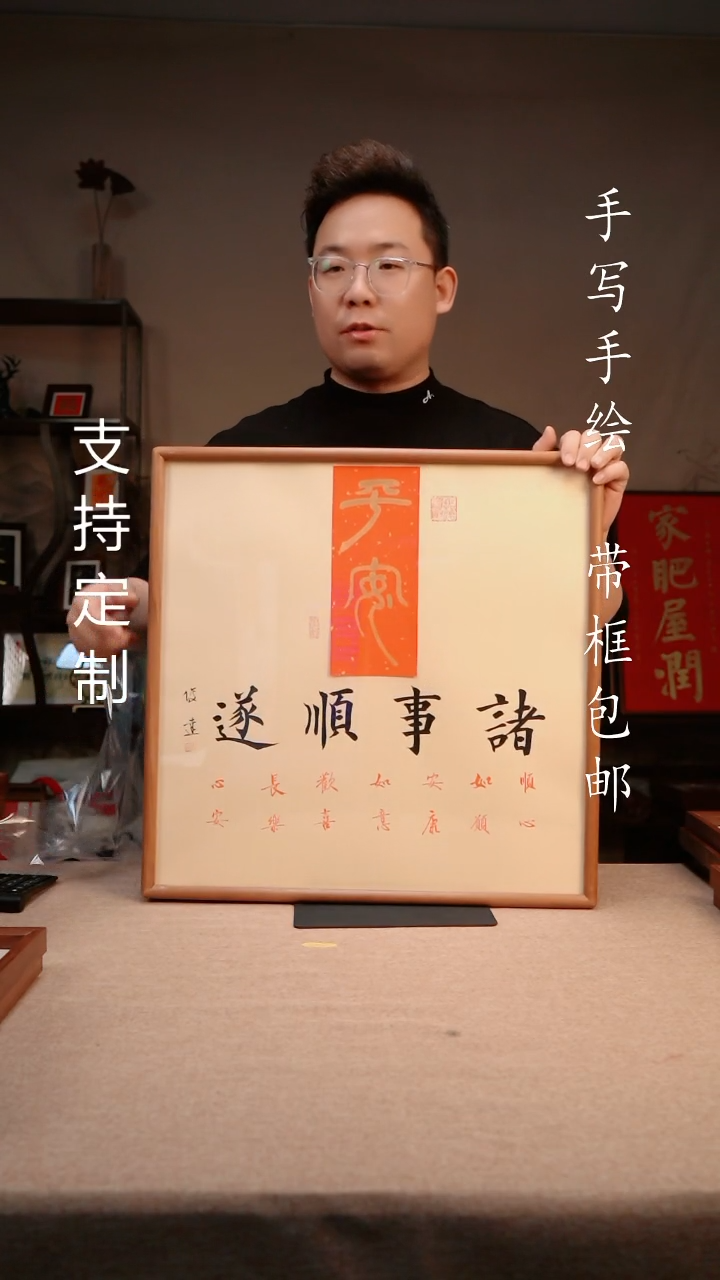 手写手绘 带框包邮
支持定制
平安
諸事順遂
順心 如願 安康 如意 歡喜 長樂 心安
家肥屋潤